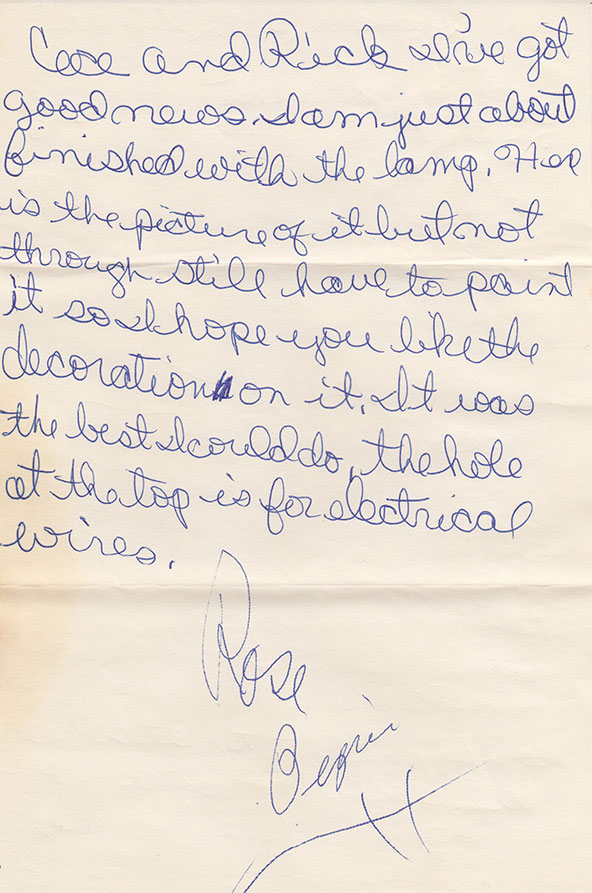 Cece and Rick I've got
good news. I am just about
finished with the lamp. Her
is the picture of it but not
through still have to paint
it so I hope you like the
decoration on it. It was
the best I could do, the hole
at the top is for electrical
wires.
Rose